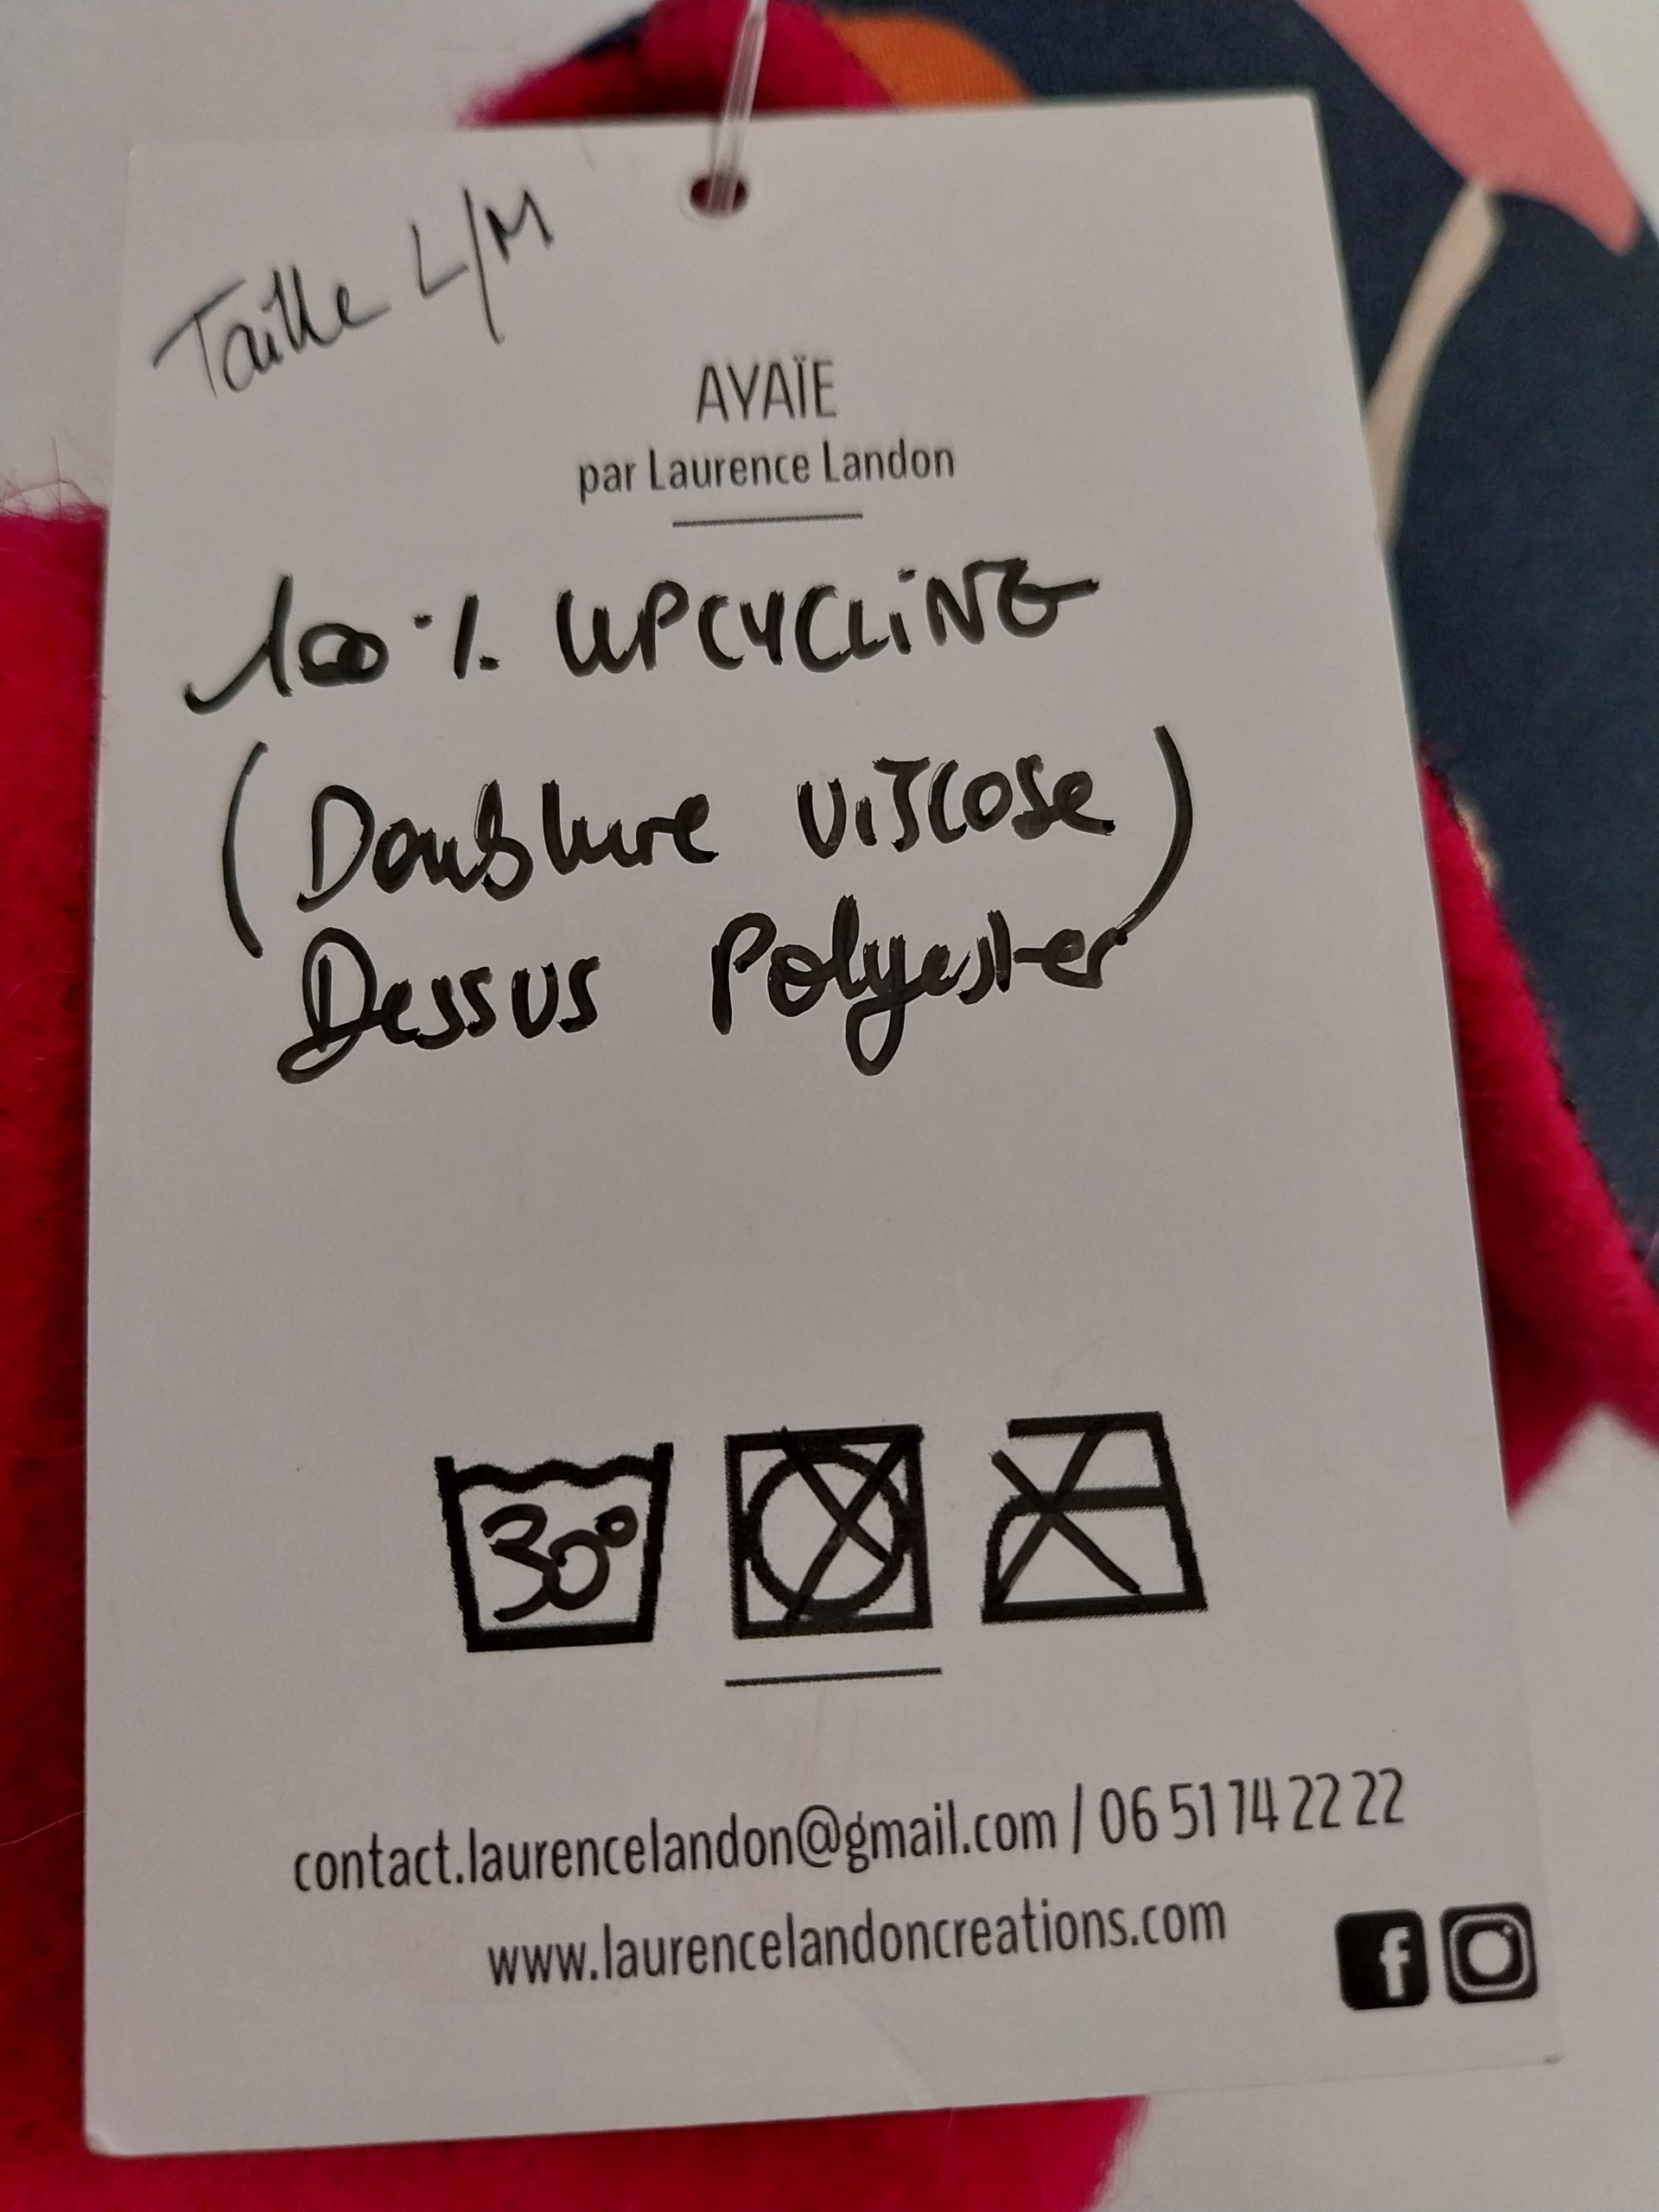 Taille L/M
AYAÏE
par Laurence Landon
100% UPCYCLiNG
(Doublure viscose)
Dessus Polyester
30°
contact.laurencelandon@gmail.com / 06 51 74 22 22
www.laurencelandoncreations.com